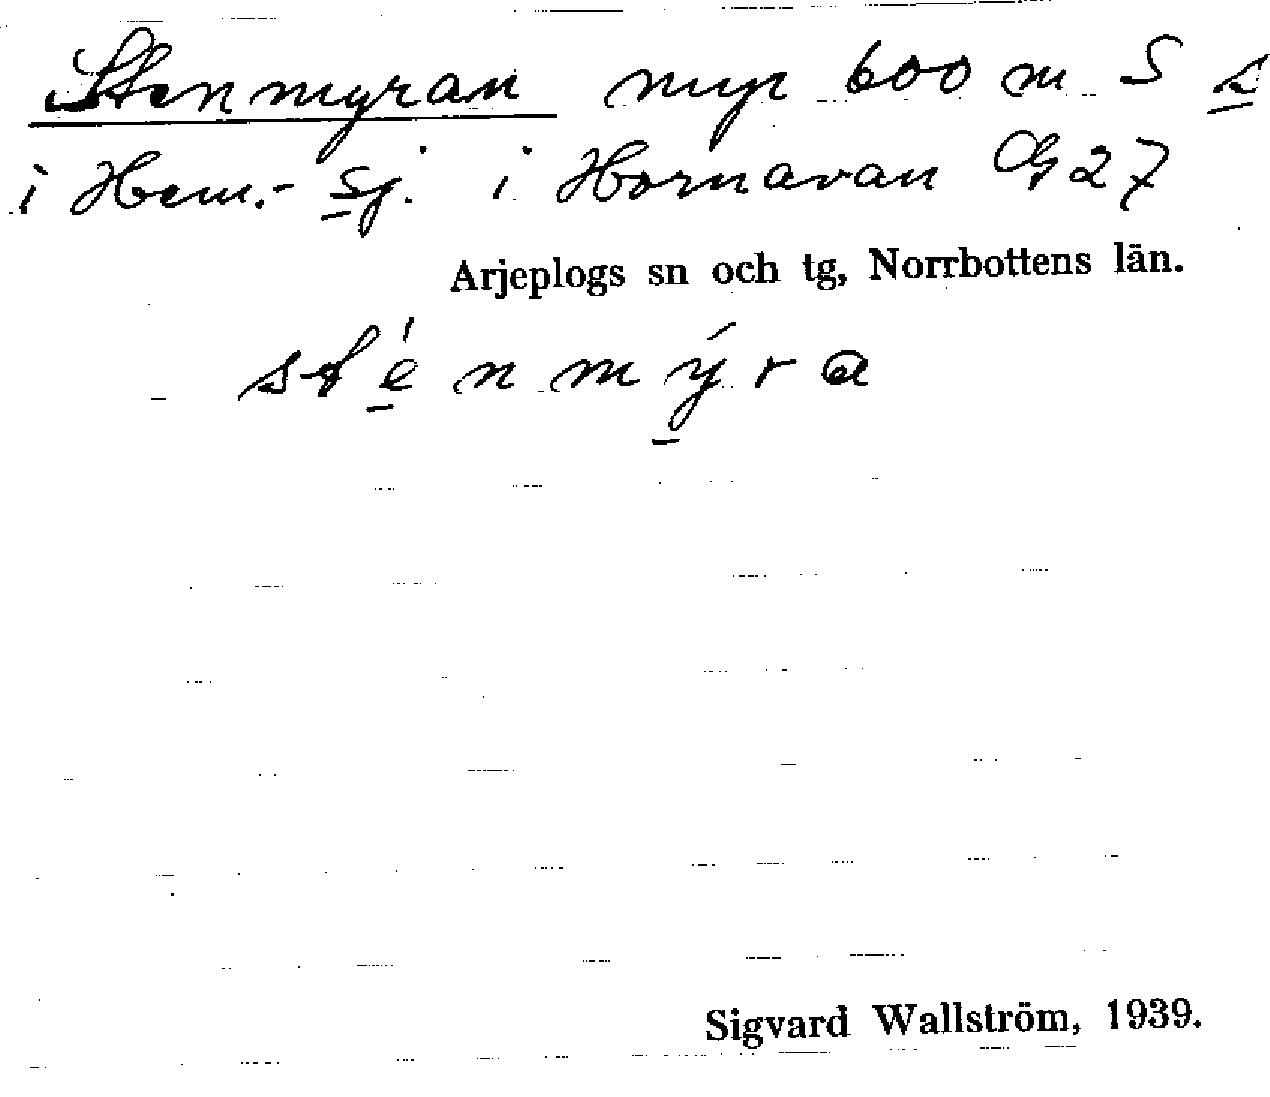 Stenmyran myr 600 m S s
i Hem.- sj. i Hornavan G 27
Arjeplogs sn och tg, Norrbottens län.
sténmýra
Sigvard Wallström, 1939.